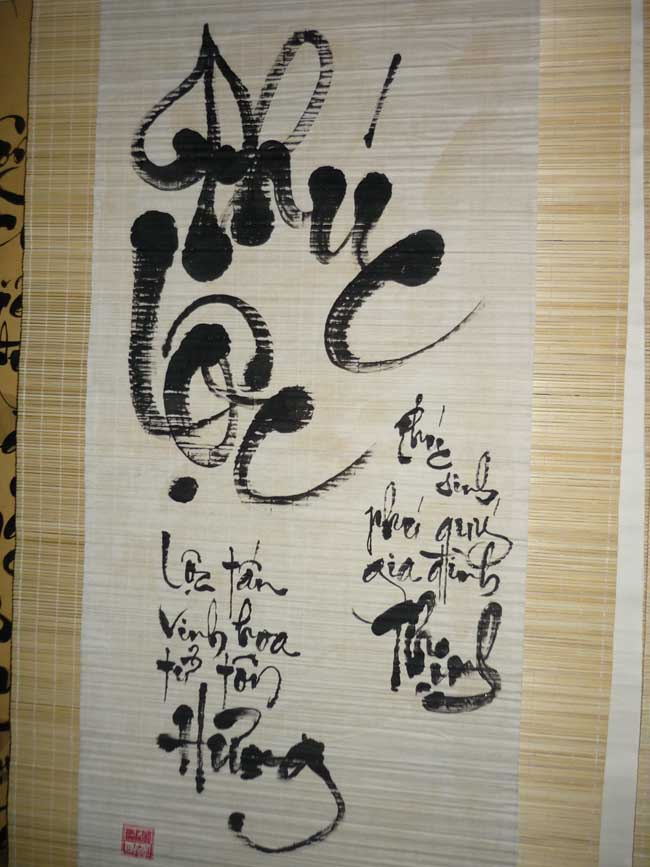 Phúc
Lộc
Phúc
sinh
phú quý
gia đình
Thịnh
Lộc tấn
vinh hoa
tử tôn
Hưng